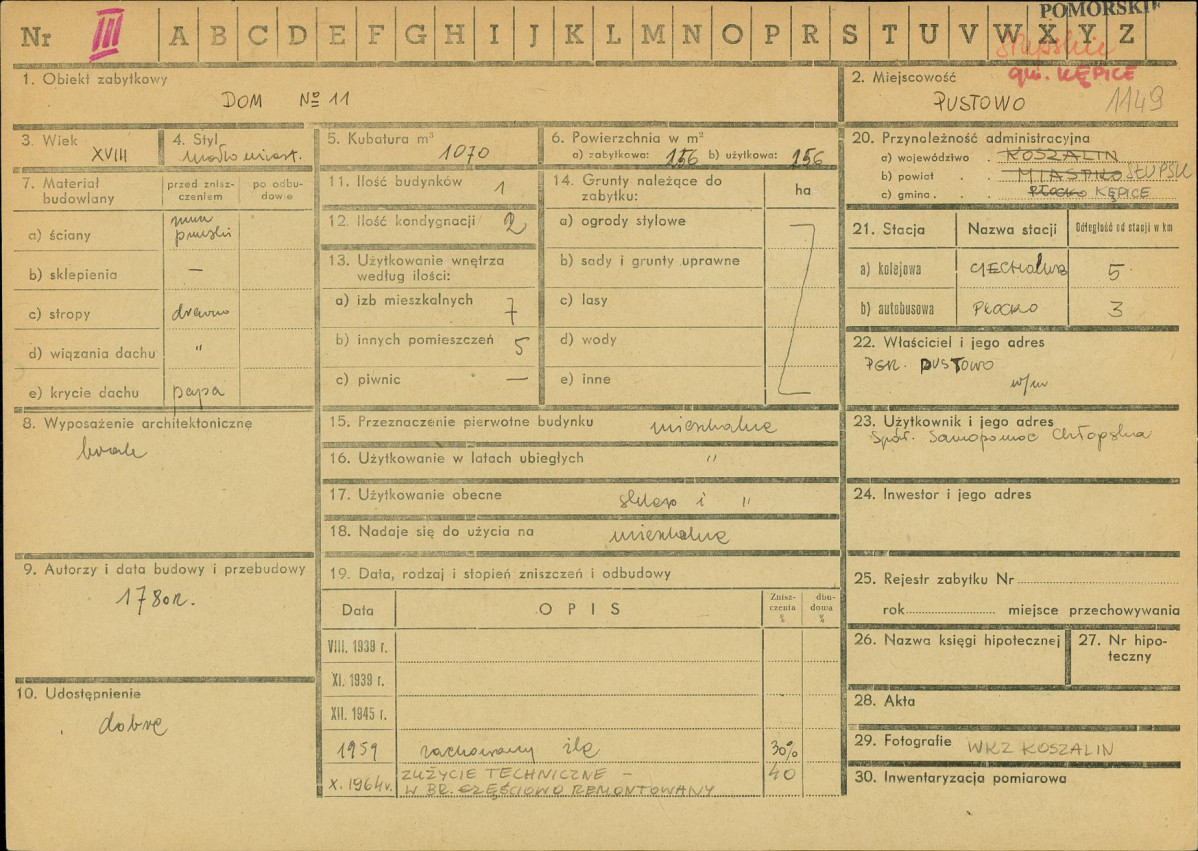 POMORSKIE
Nr III A B C D E F G H I J K L M N O P R S T U V W X Y Z
słupskie
gm. KĘPICE
1. Obiekt zabytkowy
DOM Nº 11
2. Miejscowość
PUSTOWO 1149
3. Wiek
XVIII
4. Styl
5. Kubatura m³
1070
6. Powierzchnia w m²
a) zabytkowa: 156 b) użytkowa: 156
7. Materiał budowlany
przed znisz-
czeniem
po odbu-
dowie
a) ściany
mur
pruski
b) sklepienia —
c) stropy drewno
d) wiązania dachu "
e) krycie dachu papa
8. Wyposażenie architektoniczne
brak
9. Autorzy i data budowy i przebudowy
1780 r.
10. Udostępnienie
dobre
11. Ilość budynków 1
12. Ilość kondygnacji 2
13. Użytkowanie wnętrza
według ilości:
a) izb mieszkalnych 7
b) innych pomieszczeń 5
c) piwnic —
14. Grunty należące do
zabytku:
ha
a) ogrody stylowe
b) sady i grunty uprawne
c) lasy
d) wody
e) inne
15. Przeznaczenie pierwotne budynku mieszkalne
16. Użytkowanie w latach ubiegłych "
17. Użytkowanie obecne sklep i "
18. Nadaje się do użycia na mieszkalne
19. Data, rodzaj i stopień zniszczeń i odbudowy
Data OPIS
Znisz-
czenia
%
dbu-
dowa
%
VIII. 1939 r.
XI. 1939 r.
XII. 1945 r.
1959 zachowany źle 30%
X. 1964 r. ZUŻYCIE TECHNICZNE – 40
W BR. CZĘŚCIOWO REMONTOWANY
20. Przynależność administracyjna
a) województwo . KOSZALIN
b) powiat . . MIASTKO SŁUPSK
c) gmina . . . PŁOCKO KĘPICE
21. Stacja Nazwa stacji Odległość od stacji w km
a) kolejowa 5
b) autobusowa PŁOCKO 3
22. Właściciel i jego adres
PGR. PUSTOWO
w/m
23. Użytkownik i jego adres
Spół. Samopomoc Chłopska
24. Inwestor i jego adres
25. Rejestr zabytku Nr
rok miejsce przechowywania
26. Nazwa księgi hipotecznej
27. Nr hipo-
teczny
28. Akta
29. Fotografie WKZ KOSZALIN
30. Inwentaryzacja pomiarowa